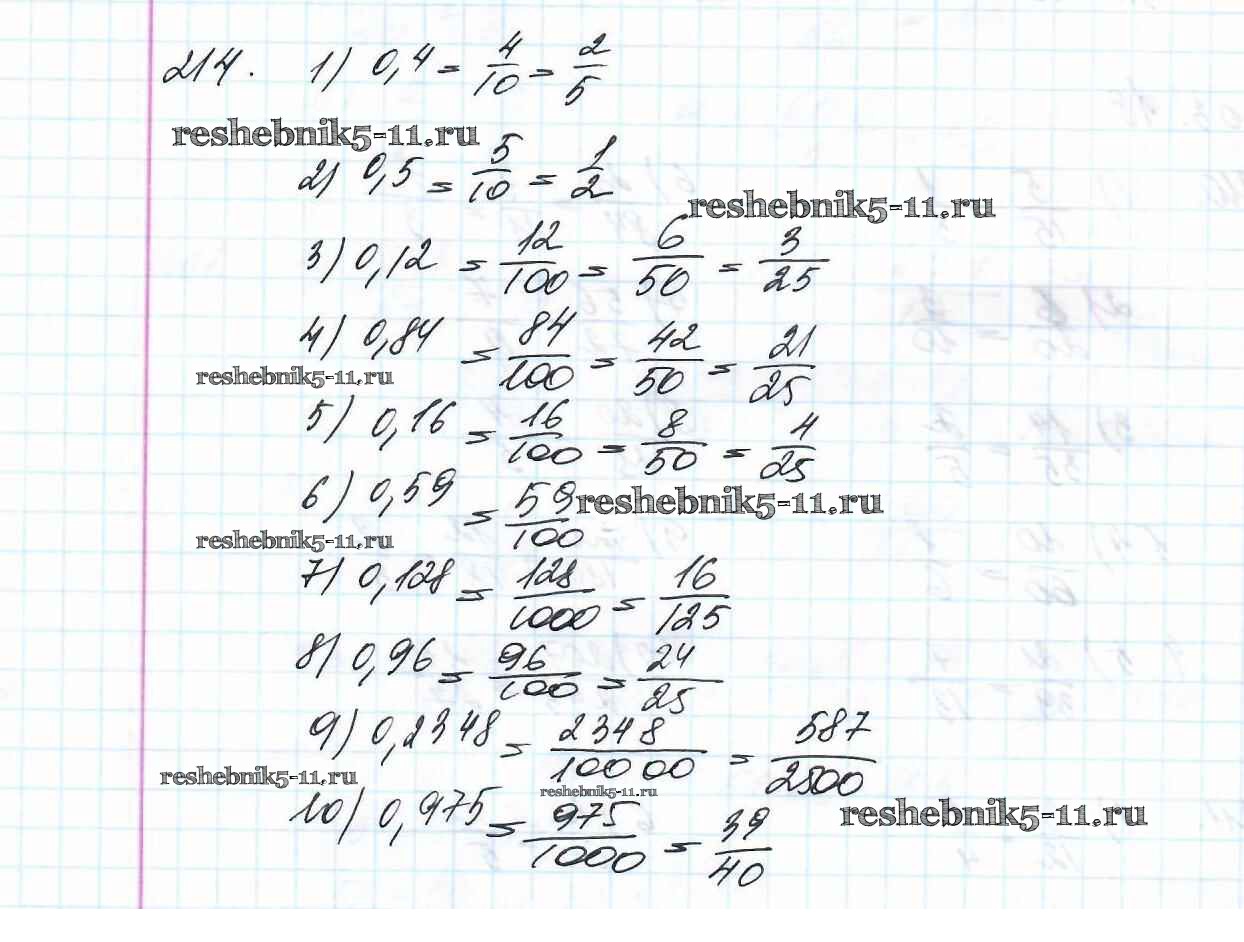 214. 1) 0,4 = 4/10 = 2/5
reshebnik5-11.ru
2) 0,5 = 5/10 = 1/2
reshebnik5-11.ru
3) 0,12 = 12/100 = 6/50 = 3/25
4) 0,84 = 84/100 = 42/50 = 21/25
reshebnik5-11.ru
5) 0,16 = 16/100 = 8/50 = 4/25
6) 0,59 = 59/100
reshebnik5-11.ru
reshebnik5-11.ru
7) 0,128 = 128/1000 = 16/125
8) 0,96 = 96/100 = 24/25
9) 0,2348 = 2348/10000 = 587/2500
reshebnik5-11.ru
reshebnik5-11.ru
10) 0,975 = 975/1000 = 39/40
reshebnik5-11.ru